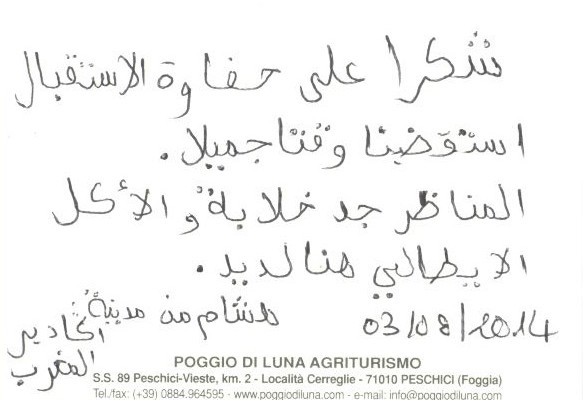 شكرا على حفاوة الاستقبال
استوقضينا وقتا جميلا.
المناظر جد خلابة والأكل
الايطالي هنا لديد.
هشام من مدينة
اكادير
المغرب
03/08/2014
POGGIO DI LUNA AGRITURISMO
S.S. 89 Peschici-Vieste, km. 2 - Località Cerreglie - 71010 PESCHICI (Foggia)
Tel./fax: (+39) 0884.964595 - www.poggiodiluna.com - e-mail: info@poggiodiluna.com